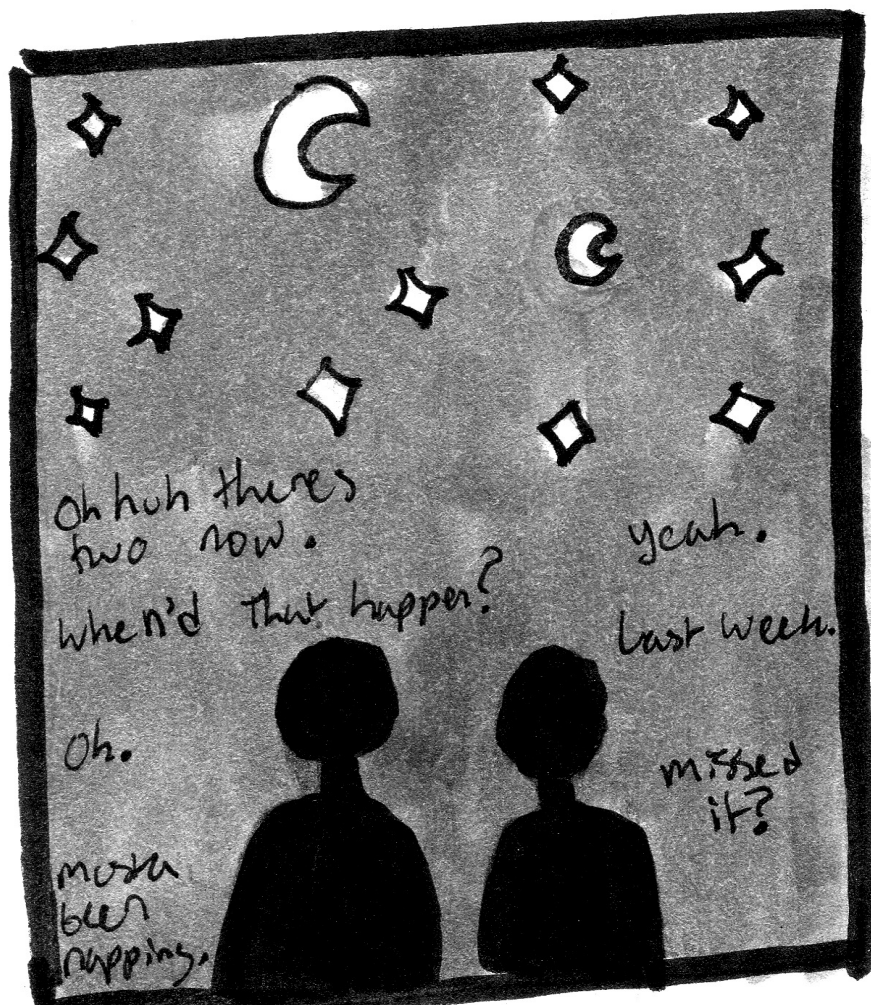 Oh huh theres
two now.
yeah.
When'd that happen?
Last week.
Oh.
missed
it?
musta
been
napping.